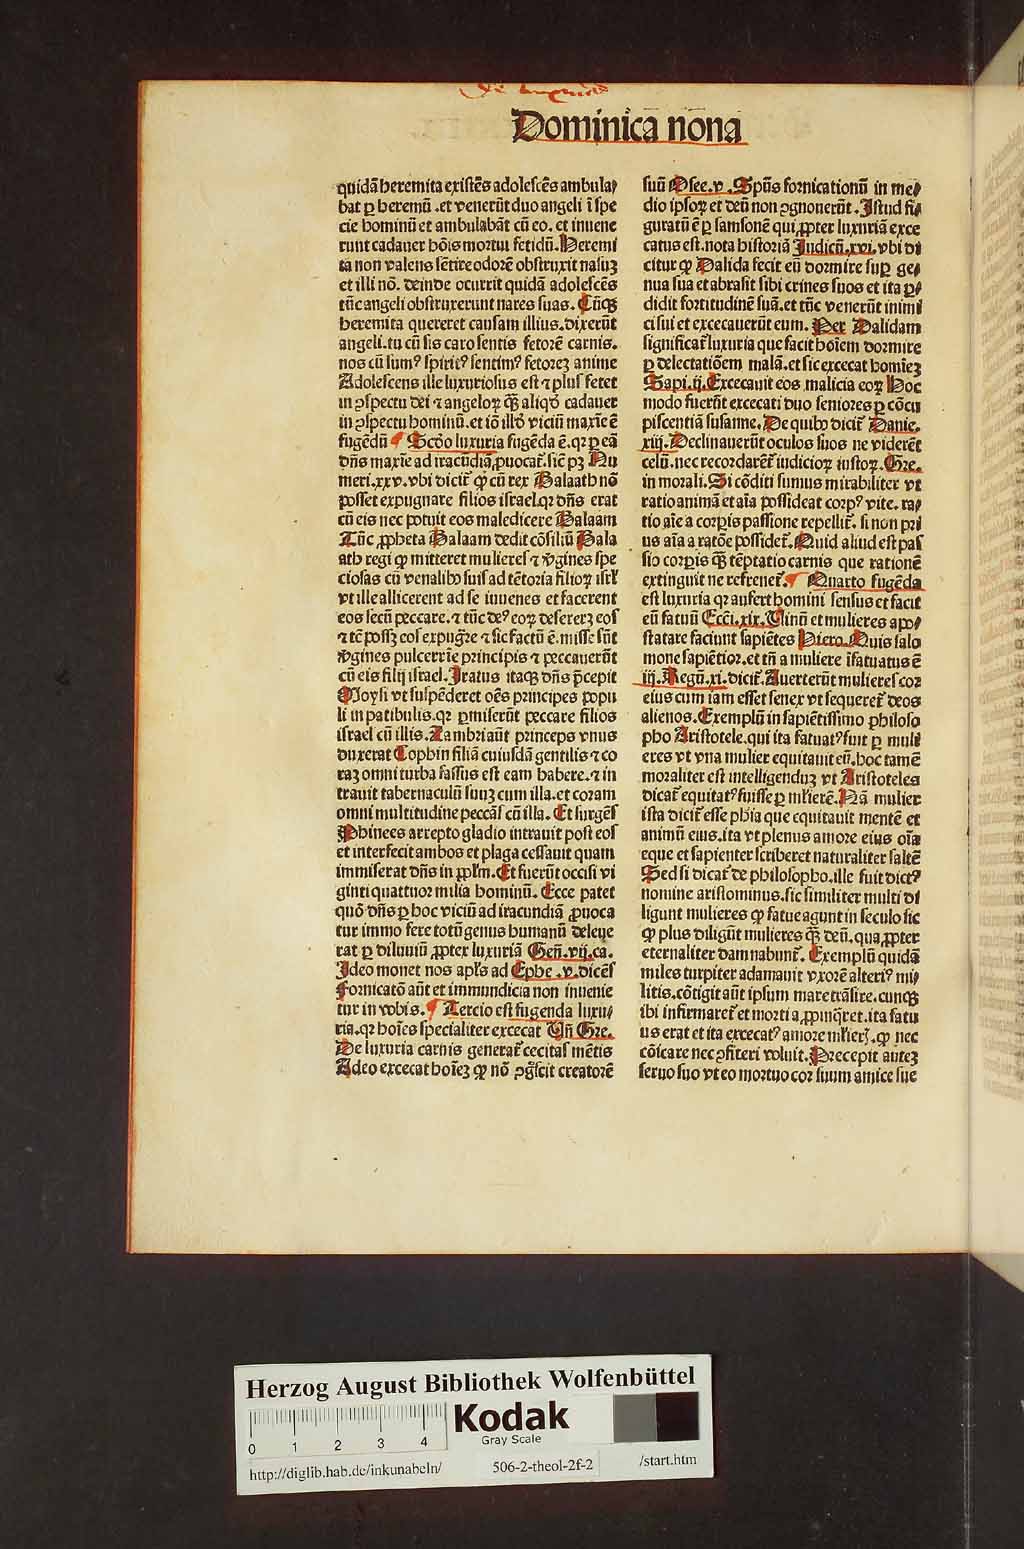 Dominica nona
quidā heremita existēs adolescēs ambula⸗
bat ꝑ heremū .et venerūt duo angeli ī spe
cie hominū et ambulabāt cū eo. et inuene
runt cadauer hōis mortui fetidū. Heremi
ta non valens sētire odorē obstruxit nasuꝫ
et illi nō. deinde ocurrit quidā adolescēs
tūc angeli obstruxerunt nares suas. Cūqꝫ
heremita quereret causam illius. dixerūt
angeli. tu cū sis caro sentis fetorē carnis.
nos cū sumꝰ spiritꝰ sentimꝰ fetoreꝫ anime
Adolescens ille luxuriosus est ⁊ plus fetet
in ꝯspectu dei ⁊ angeloꝝ qꝫ̄ aliqḋ cadauer
in ꝯspectu hominū. et iō illḋ viciū maxīe ē
fugēdū ¶ Scḋo luxuria fugēda ē. qꝛ ꝑ eā
dn̄s maxīe ad iracūdiā ꝓuocat̄. sic̄ pꝫ Nu
meri. xxv. vbi dicit̄ ꝙ cū rex Balaath nō
posset expugnare filios israel. qꝛ dn̄s erat
cū eis nec potuit eos maledicere Balaam
Tūc ꝓpheta Balaam dedit cōsiliū Bala
ath regi ꝙ mitteret mulieres ⁊ v̓gines spe
ciosas cū venalibꝫ suis ad tētoria filioꝝ isrl̓
vt ille allicerent ad se iuuenes et facerent
eos secū peccare. ⁊ tūc deꝰ eoꝝ desereret eos
⁊ tē possꝫ eos expug̓re ⁊ sic factū ē. misse sūt
v̓gines pulcerrīe principis ⁊ peccauerūt
cū eis filij israel. Iratus itaqꝫ dn̄s p̄cepit
Moysi vt suspēderet oēs principes popu
li in patibulis. qꝛ ꝑmiserūt peccare filios
israel cū illis. Zambriaūt princeps vnus
duxerat Cophin filiā cuiusdā gentilis ⁊ co
raꝫ omni turba fassus est eam habere. ⁊ in
trauit tabernaculū suuꝫ cum illa. et coram
omni multitudine peccās cū illa. Et surgēs
Phinees arrepto gladio intrauit post eos
et interfecit ambos et plaga cessauit quam
immiserat dn̄s in ppl̄m. Et fuerūt occisi vi
ginti quattuor milia hominū. Ecce patet
quō dn̄s ꝑ hoc viciū ad iracundiā ꝓuoca
tur immo fere totū genus humanū deleue
rat ꝑ diluuiū ꝓpter luxuriā Geñ. vij. ca.
Ideo monet nos apl̄s ad Ephe .v. dicēs
Fornicatō aūt et immundicia non inuenie
tur in vobis. ¶ Tercio est fugenda luxu⸗
ria. qꝛ hoīes specialiter excecat Vn̄ Gre.
De luxuria carnis generat̄ cecitas mētis
Adeo excecat hoīeꝫ ꝙ nō ꝯg̓scit creatorē
suū Osee. v. Sp̄us fornicationū in me⸗
dio ipsoꝝ et deū non ꝯgnouerūt. Istud fi⸗
guratū ē ꝑ samsonē qui ꝓpter luxuriā exce
catus est. nota historiā Iudicū. xvi. vbi di
citur ꝙ Dalida fecit eū dormire suꝑ ge⸗
nua sua et abrasit sibi crines suos et ita ꝑ⸗
didit fortitudinē suā. et tūc venerūt inimi
ci sui et excecauerūt eum. Per Dalidam
significat̄ luxuria que facit hoīem dormire
ꝑ delectatiōem malā. et sic excecat homīeꝫ
Sapi. ij. Excecauit eos malicia eoꝝ Hoc
modo fuerūt excecati duo seniores ꝑ cōcu
piscentiā susanne. De quibꝫ dicit̄ Danie.
xiij. Declinauerūt oculos suos ne viderēt
celū. nec recordarēt̄ iudicioꝝ iustoꝝ. Gre.
in morali. Si cōditi sumus mirabiliter vt
ratio animā et aīa possideat corpꝰ vite. ra⸗
tio aīe a corpis passione repellit̄. si non pri
us aīa a ratōe possidet̄. Quid aliud est pas
sio corpis qꝫ̄ tēptatio carnis que rationē
extinguit ne refrenet̄. ¶ Quarto fugēda
est luxuria qꝛ aufert homini sensus et facit
eū fatuū Ecci. xix. Vinū et mulieres apo⸗
statare faciunt sapiētes Piero. Quis salo
mone sapiētior. et tn̄ a muliere īfatuatus ē
iij. Regū. xi. dicit̄. Auerterūt mulieres cor
eius cum iam esset senex vt sequeret̄ deos
alienos. Exemplū in sapiētissimo philoso
pho Aristotele. qui ita fatuatꝰ fuit ꝑ muli
eres vt vna mulier equitauit eū. hoc tamē
moraliter est intelligenduꝫ vt Aristoteles
dicat̄ equitatꝰ fuisse ꝑ ml̓ierē. Nā mulier
ista dicit̄ esse phīa que equitauit mentē et
animū eius. ita vt plenus amore eius oīa
eque et sapienter scriberet naturaliter saltē
Sed si dicat̄ de philosopho. ille fuit dictꝰ
nomine aristominus. sic similiter multi di
ligunt mulieres ꝙ fatue agunt in seculo sic
ꝙ plus diligūt mulieres qꝫ̄ deū. qua ꝓpter
eternaliter damnabunt̄. Exemplū quidā
miles turpiter adamauit vxorē alteriꝰ mi⸗
litis. cōtigit aūt ipsum mare trāsire. cunqꝫ
ibi infirmaret̄ et morti a ꝓpinq̓ret. ita fatu
us erat et ita excecatꝰ amore ml̓ierꝭ. ꝙ nec
cōicare nec ꝯfiteri voluit. Precepit auteꝫ
seruo suo vt eo mortuo cor suum amice sue
Herzog August Bibliothek Wolfenbüttel
Kodak
Gray Scale
0 1 2 3 4
http://diglib.hab.de/inkunabeln/ 506-2-theol-2f-2 /start.htm